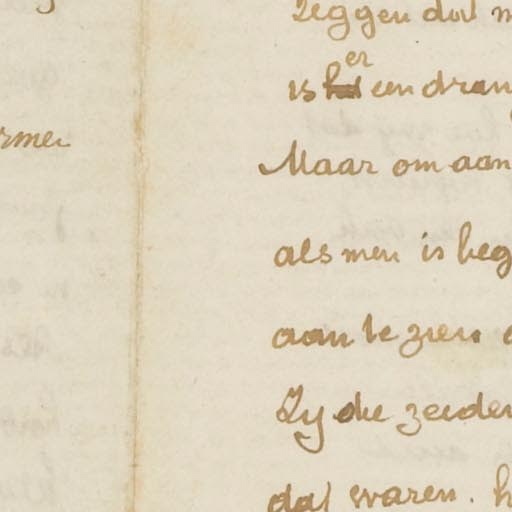 rmee
Zeggen dat m
is er een dran
Maar om aan
als men is beg
aan te zien
Zij die zeiden
dat waren. h